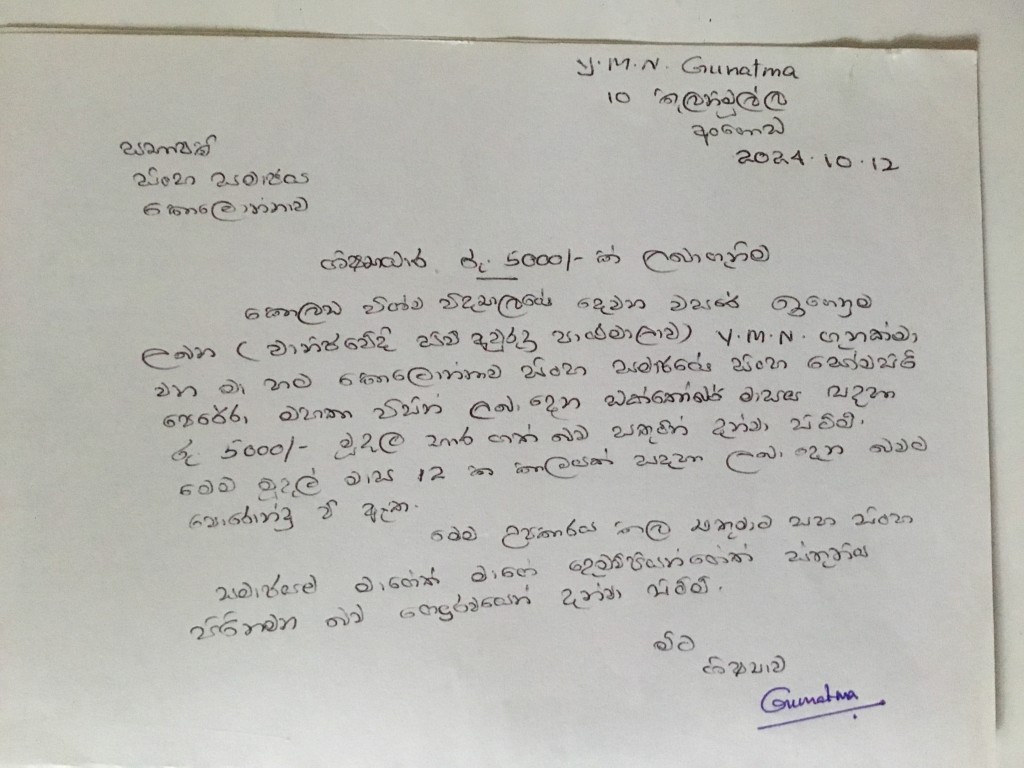 Y.M.N. Gunatma
10 කුලනමුල්ල
අංගොඩ
2024.10.12
සභාපති
සිංහ සමාජය
කොලොන්නාව
ශිෂ්‍යාධාර රු. 5000/- ක් ලබාගැනීම
කොලඹ විශ්ව විද්‍යාලයේ දෙවන වසරේ ඉගෙනුම
ලබන ( වාණිජවේදී සිව් අවුරුදු පාඨමාලාව) Y.M.N.
වන මා හට කොලොන්නාව සිංහ සමාජයේ සිංහ
පෙරේරා මහතා විසින් ලබා දෙන ඔක්තෝබර් මාසය සඳහා
රු 5000/- මුදල භාර ගත් බව සතුටින් දන්වා සිටිමි.
මෙම මුදල් මාස 12 ක කාලයක් සඳහා ලබා දෙන බවට
පොරොන්දු වී ඇත.
මෙම උපකාරය කල සතුමාට සහ සිංහ
සමාජයට මාගේත් මාගේ දෙමව්පියන්ගේත් ස්තූතිය
පිරිනමන බව ගෞරවයෙන් දන්වා සිටිමි.
මීට
ශිෂ්‍යාව
Gunatma